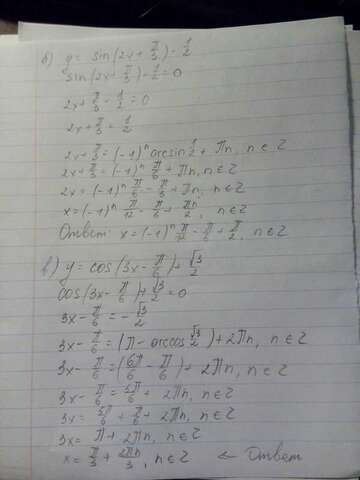 б) y = sin(2x + π/3) - 1/2
sin(2x + π/3) - 1/2 = 0
2x + π/3 - 1/2 = 0
2x + π/3 = 1/2
2x + π/3 = (-1)ⁿ arcsin 1/2 + πn, n ∈ Z
2x + π/3 = (-1)ⁿ π/6 + πn, n ∈ Z
2x = (-1)ⁿ π/6 - π/3 + πn, n ∈ Z
x = (-1)ⁿ π/12 - π/6 + πn/2, n ∈ Z
Ответ: x = (-1)ⁿ π/12 - π/6 + π/2, n ∈ Z
в) y = cos(3x - π/6) + √3/2
cos(3x - π/6) + √3/2 = 0
3x - π/6 = -√3/2
3x - π/6 = (π - arccos √3/2) + 2πn, n ∈ Z
3x - π/6 = (6π/6 - π/6) + 2πn, n ∈ Z
3x - π/6 = 5π/6 + 2πn, n ∈ Z
3x = 5π/6 + π/6 + 2πn, n ∈ Z
3x = π + 2πn, n ∈ Z
x = π/3 + 2πn/3, n ∈ Z ← Ответ